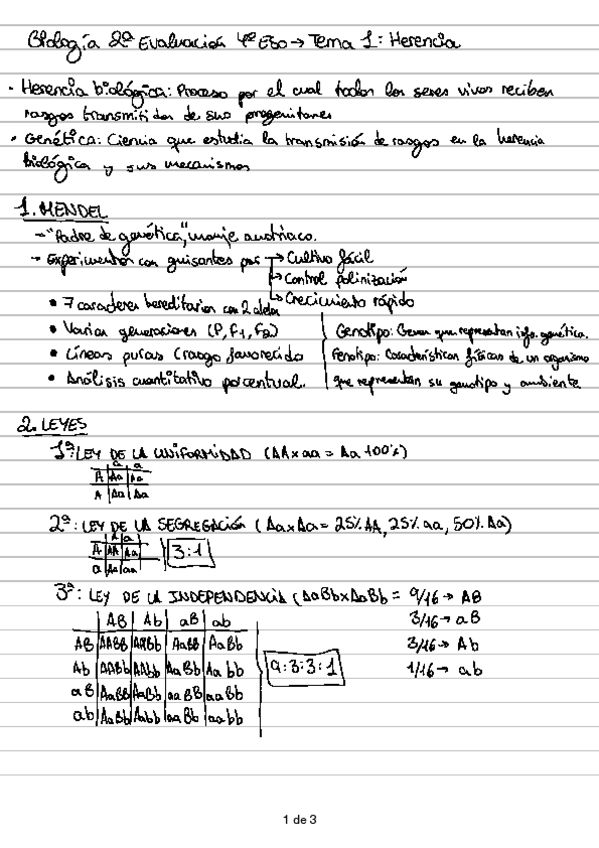 Biología 2ª Evaluación 4º Eso → Tema 1: Herencia
· Herencia biológica: Proceso por el cual todos los seres vivos reciben
rasgos transmitidos de sus progenitores
· Genética: Ciencia que estudia la transmisión de rasgos en la herencia
biológica y sus mecanismos
1. MENDEL
- "Padre de genética", monje austriaco.
- Experimentos con guisantes por → Cultivo fácil
→ Control polinización
→ Crecimiento rápido
• 7 caracteres hereditarios con 2 alelos
• Varias generaciones (P, F1, F2)
• Líneas puras (rasgo favorecido
• Análisis cuantitativo porcentual.
Genotipo: Genes que representan info. genética.
Fenotipo: Características físicas de un organismo
que representan su genotipo y ambiente
2. LEYES
1ª: LEY DE LA UNIFORMIDAD (AA x aa = Aa 100%)
a a
A Aa Aa
A Aa Aa
2ª: LEY DE LA SEGREGACIÓN (Aa x Aa = 25% AA, 25% aa, 50% Aa)
A a
A AA Aa
a Aa aa
3:1
3ª: LEY DE LA INDEPENDENCIA (AaBb x AaBb = 9/16 → AB
3/16 → aB
3/16 → Ab
1/16 → ab
AB Ab aB ab
AB AABB AABb AaBB AaBb
Ab AABb AAbb AaBb Aabb
aB AaBB AaBb aaBB aaBb
ab AaBb Aabb aaBb aabb
9:3:3:1
1 de 3